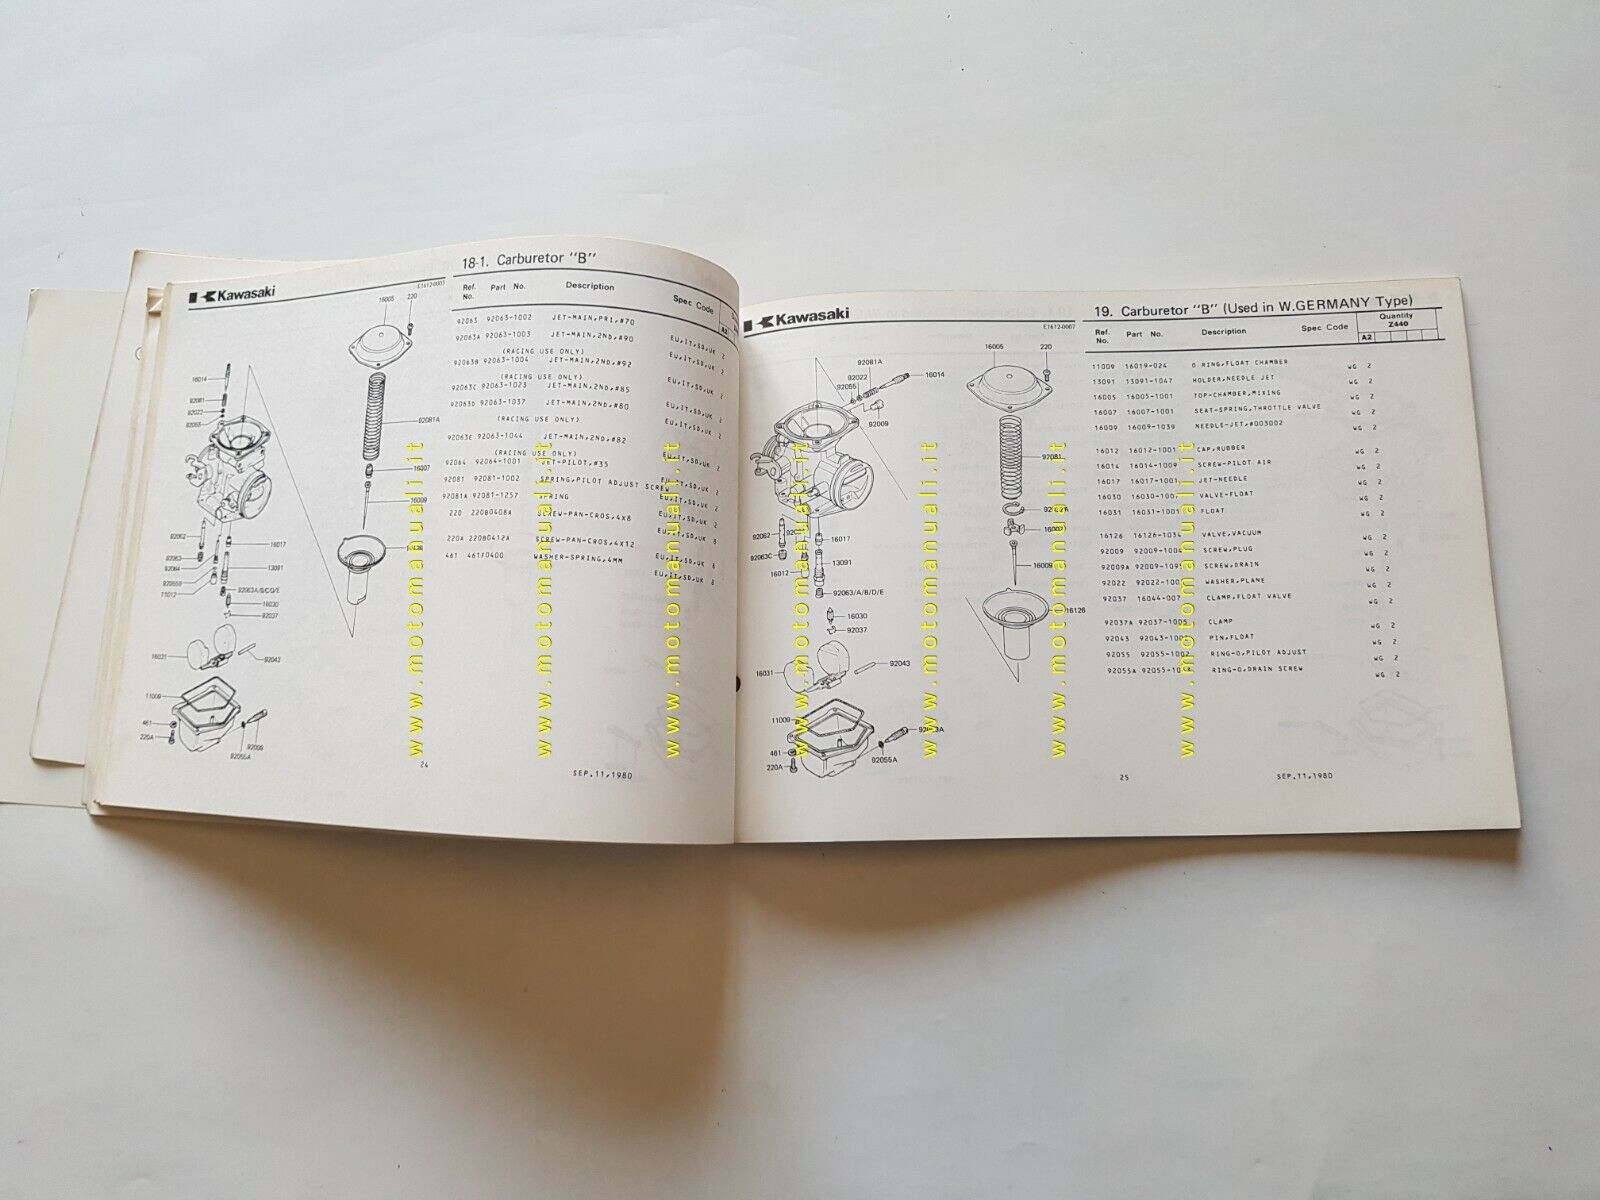 18-1. Carburetor "B"
Kawasaki
E1612-0003
Ref. No. Part No. Description Spec Code
A2
92063 92063-1002 JET-MAIN,PRI,#70
EU,IT,SD,UK 2
92063A 92063-1003 JET-MAIN,2ND,#90
EU,IT,SD,UK 2
(RACING USE ONLY)
92063B 92063-1004 JET-MAIN,2ND,#92
EU,IT,SD,UK 2
(RACING USE ONLY)
92063C 92063-1023 JET-MAIN,2ND,#85
EU,IT,SD,UK 2
92063D 92063-1037 JET-MAIN,2ND,#80
EU,IT,SD,UK 2
(RACING USE ONLY)
92063E 92063-1044 JET-MAIN,2ND,#82
EU,IT,SD,UK 2
(RACING USE ONLY)
92064 92064-1001 JET-PILOT,#35
EU,IT,SD,UK 2
92081 92081-1002 SPRING,PILOT ADJUST SCREW
EU,IT,SD,UK 2
92081A 92081-1257 SPRING
EU,IT,SD,UK 2
220 220B0408A SCREW-PAN-CROS,4X8
EU,IT,SD,UK 8
220A 220B0412A SCREW-PAN-CROS,4X12
EU,IT,SD,UK 8
461 461F0400 WASHER-SPRING,4MM
EU,IT,SD,UK 8
16005 220
16014
92081
92022
92055
92081A
16007
16009
16126
92062
16017
92063
92064
13091
92055B
11012
92063A/B/C/D/E
16030
92037
16031
92043
11009
461
220A
92009
92055A
24
SEP.11,1980
www.motomanuali.it
www.motomanuali.it
www.motomanuali.it
19. Carburetor "B" (Used in W.GERMANY Type)
Kawasaki
E1612-0007
Ref. No. Part No. Description Spec Code
Quantity
Z440
A2
11009 16019-024 O RING,FLOAT CHAMBER WG 2
13091 13091-1047 HOLDER,NEEDLE JET WG 2
16005 16005-1001 TOP-CHAMBER,MIXING WG 2
16007 16007-1001 SEAT-SPRING,THROTTLE VALVE WG 2
16009 16009-1039 NEEDLE-JET,#003002 WG 2
16012 16012-1001 CAP,RUBBER WG 2
16014 16014-1009 SCREW-PILOT AIR WG 2
16017 16017-1001 JET-NEEDLE WG 2
16030 16030-1007 VALVE-FLOAT WG 2
16031 16031-1001 FLOAT WG 2
16126 16126-1034 VALVE,VACUUM WG 2
92009 92009-1004 SCREW,PLUG WG 2
92009A 92009-1095 SCREW,DRAIN WG 2
92022 WASHER,PLANE WG 2
92037 16044-007 CLAMP,FLOAT VALVE WG 2
92037A 92037-1005 CLAMP WG 2
92043 PIN,FLOAT WG 2
92055 92055-1002 RING-O,PILOT ADJUST WG 2
92055A RING-O,DRAIN SCREW WG 2
16005 220
92081A
92022
92055
16014
92009
92081
16007
16009
16126
92062
16017
92063C
16012
13091
92063/A/B/D/E
16030
92037
16031
92043
11009
461
220A
92055A
25
SEP.11,1980
www.motomanuali.it
www.motomanuali.it
www.motomanuali.it
www.motomanuali.it